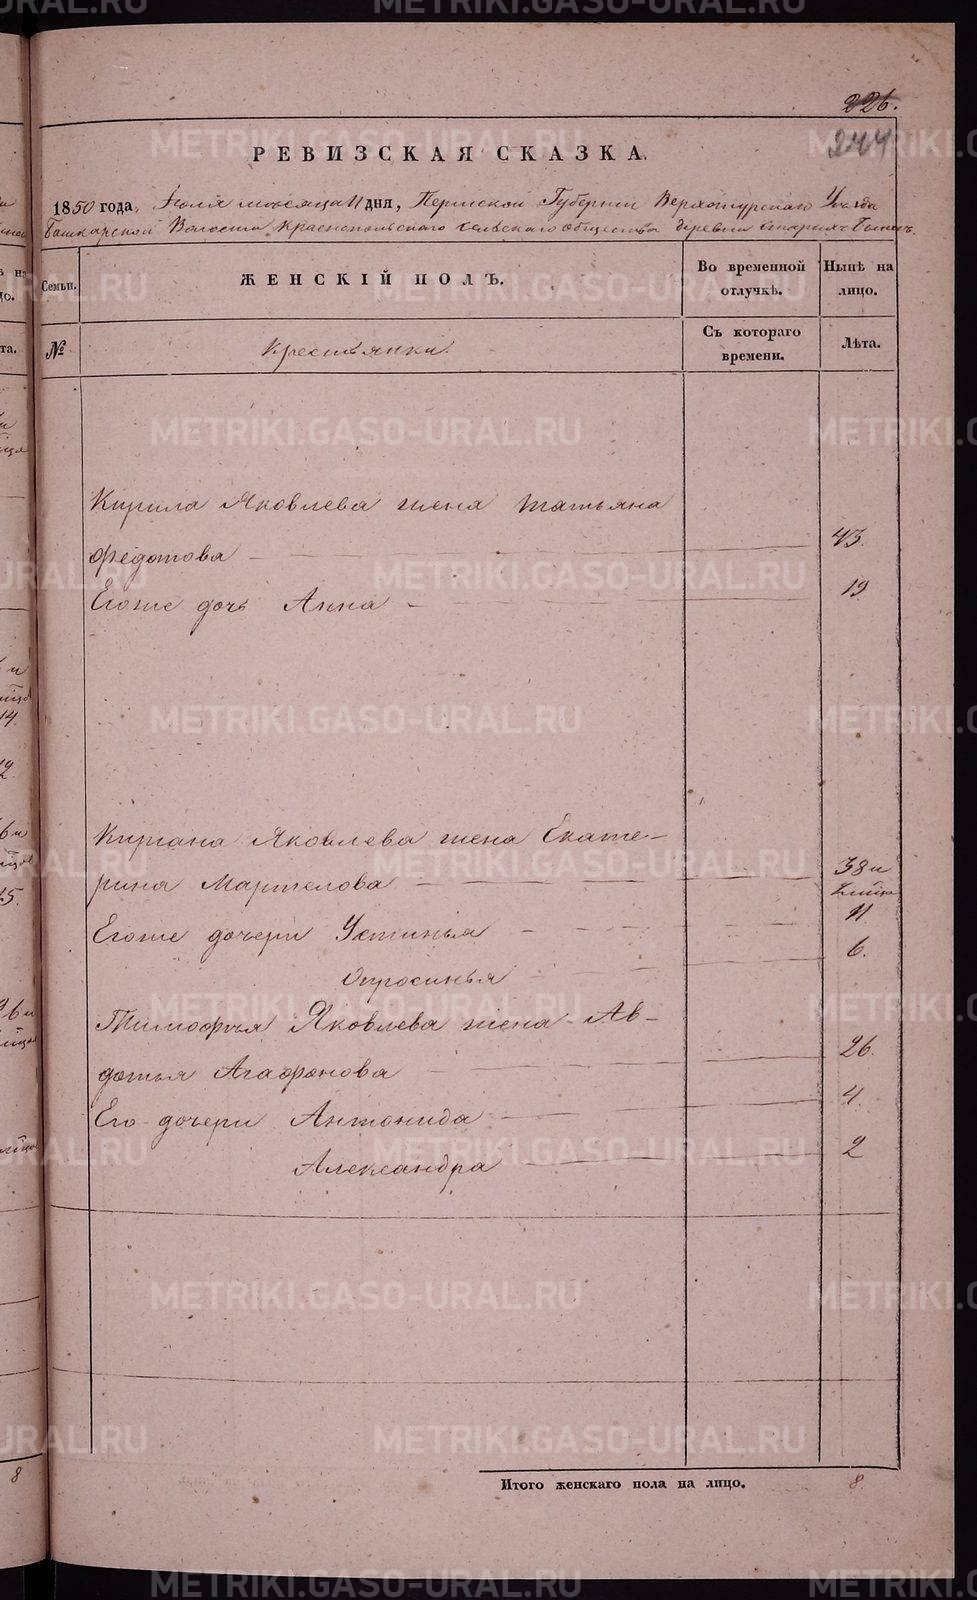 226.
244
РЕВИЗСКАЯ СКАЗКА.
1850 года, Июля месяца 11 дня, Пермской Губернии Верхотурскаго Уезда
Башкарской Волости Краснопольскаго сельскаго общества деревни
Семьи.
ЖЕНСКІЙ ПОЛЪ.
Во временной отлучкѣ.
Нынѣ на лицо.
№
Крестьянки.
Съ котораго времени.
Лѣта.
Кирила Яковлева жена Татьяна
Федотова 43.
Егоже дочь Анна 19
Яковлева жена Екате-
рина 38 и
Егоже дочери Устинья 11
Опросинья 6.
Тимофея Яковлева жена Ав-
дотья Агафонова 26.
Его дочери Антонида 4.
Александра 2
Итого женскаго пола на лицо. 8
8
METRIKI.GASO-URAL.RU